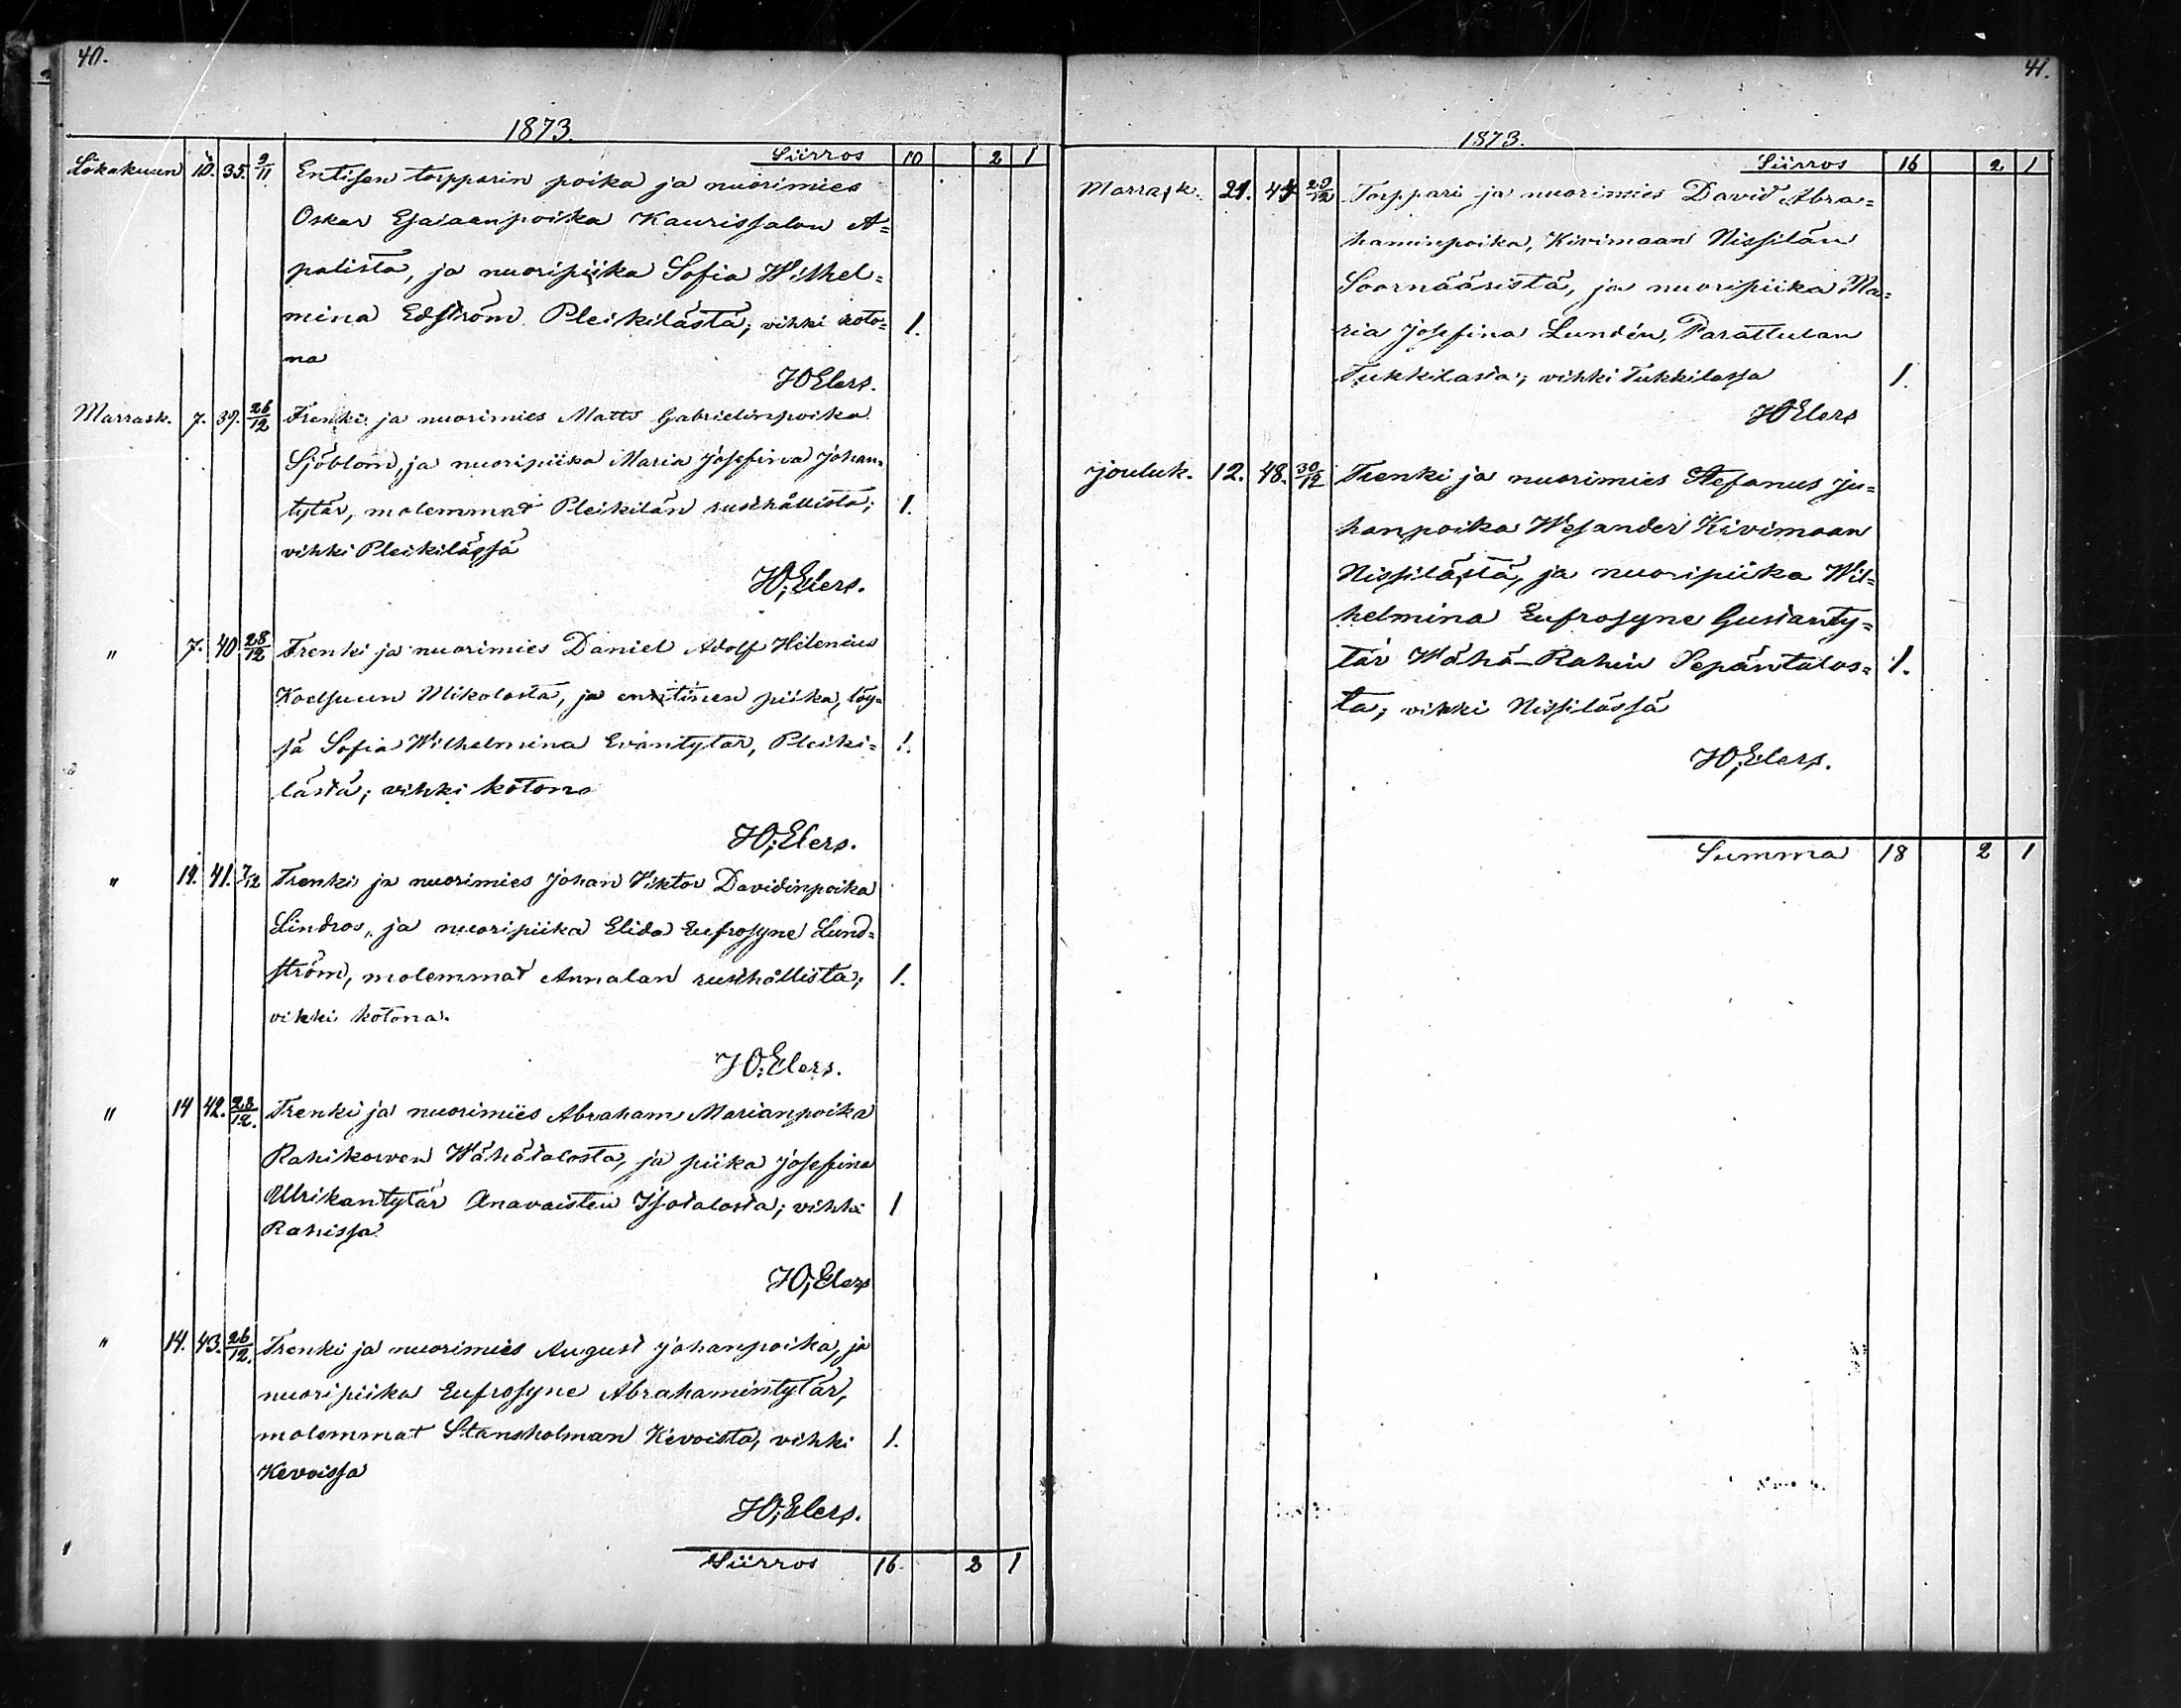 40.
1873.
Siirros 10 2 1
Lokakuun 10. 35. 9/11 Entisen torpparin poika ja nuorimies
Oskar Esaiaanpoika Kaurissalon A=
palista, ja nuoripiika Sofia Wilhel=
mina Edström Pleikilästä; vihki koto= 1.
na
HOElers.
Marrask. 7. 39. 26/12 Trenki ja nuorimies Matts Gabrielinpoika
Sjöblom, ja nuoripiika Maria Josefina Johan=
tytär, molemmat Pleikilän rusthållista; 1.
vihki Pleikilässä
HO;Elers.
" 7. 40 28/12 Trenki ja nuorimies Daniel Adolf Hilenius
Mikolasta, ja entinen piika, löy=
sä Sofia Wilhelmina Evantytär, Pleiki= 1.
lästä; vihki kotona
HO;Elers.
" 14. 41. 7/12 Trenki ja nuorimies Johan Viktor Davidinpoika
Lindros, ja nuoripiika Elida Eufrosyne Lund=
ström, molemmat Annalan rusthållista; 1.
vihki kotona.
HO;Elers.
" 14 42. 28/12. Trenki ja nuorimies Abraham Marianpoika
Rahikorven Wähätalosta, ja piika Josefina
Ulrikantytär Anavaisten Isotalosta; vihki 1
Rahissa
HO;Elers
" 14. 43. 26/12. Trenki ja nuorimies August Johanpoika, ja
nuoripiika Eufrosyne Abrahamintytär,
molemmat Stansholman Kevoista; vihki 1.
Kevoissa
HO;Elers.
Siirros 16. 2 1
41.
1873.
Siirros 16 2 1
Marrask. 21. 44 29/12 Torppari ja nuorimies David Abra=
haminpoika, Kivimaan Nissilän
Soornääristä, ja nuoripiika Ma=
ria Josefina Lundén, Parattulan
Tukkilasta; vihki Tukkilassa 1.
HOElers
Jouluk. 12. 48. 30/12 Trenki ja nuorimies Stefanus Ju=
hanpoika Wesander Kivimaan
Nissilästä, ja nuoripiika Wil=
helmina Eufrosyne Gustanty=
tär Wähä-Rahin Sepäntalos= 1.
ta; vihki Nissilässä
HO;Elers.
Summa 18 2 1